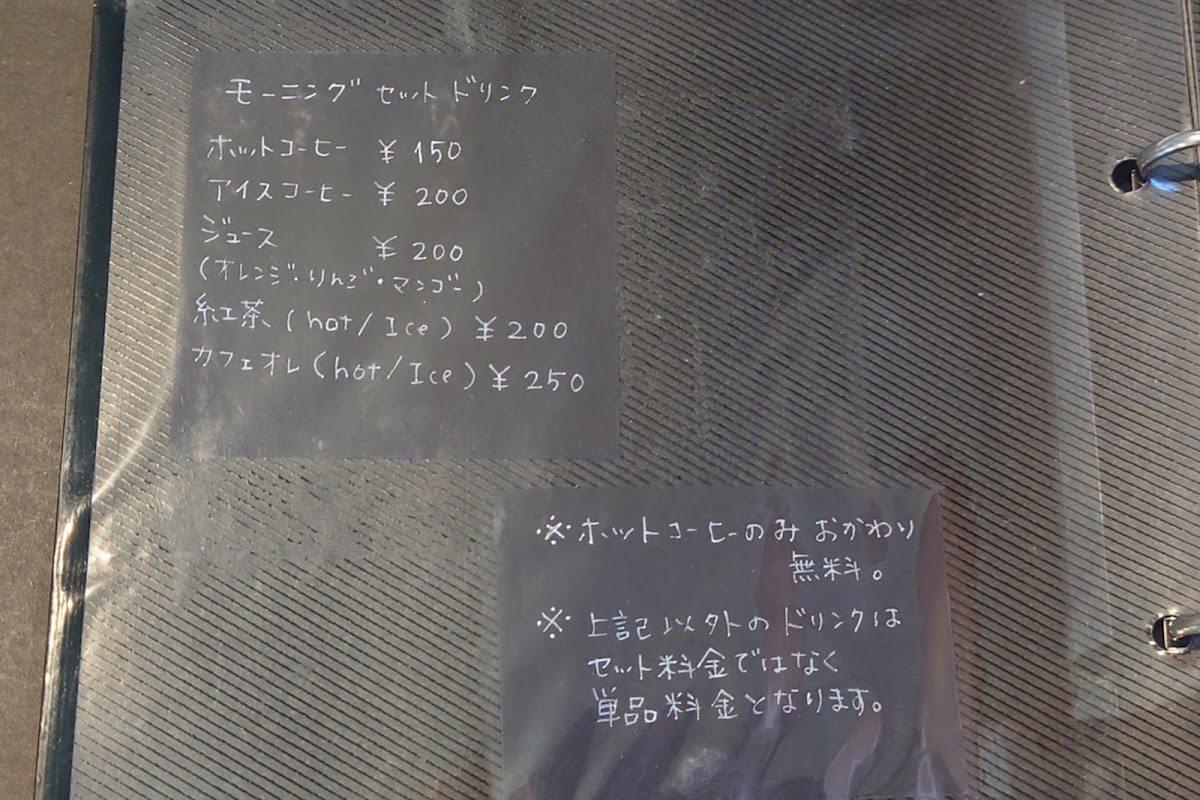 モーニング セット ドリンク
ホットコーヒー ¥ 150
アイスコーヒー ¥ 200
ジュース ¥ 200
(オレンジ・りんご・マンゴー)
紅茶 (hot/Ice) ¥200
カフェオレ(hot/Ice)¥250
※ホットコーヒーのみ おかわり
無料。
※ 上記以外の ドリンクは
セット料金ではなく
単品料金となります。